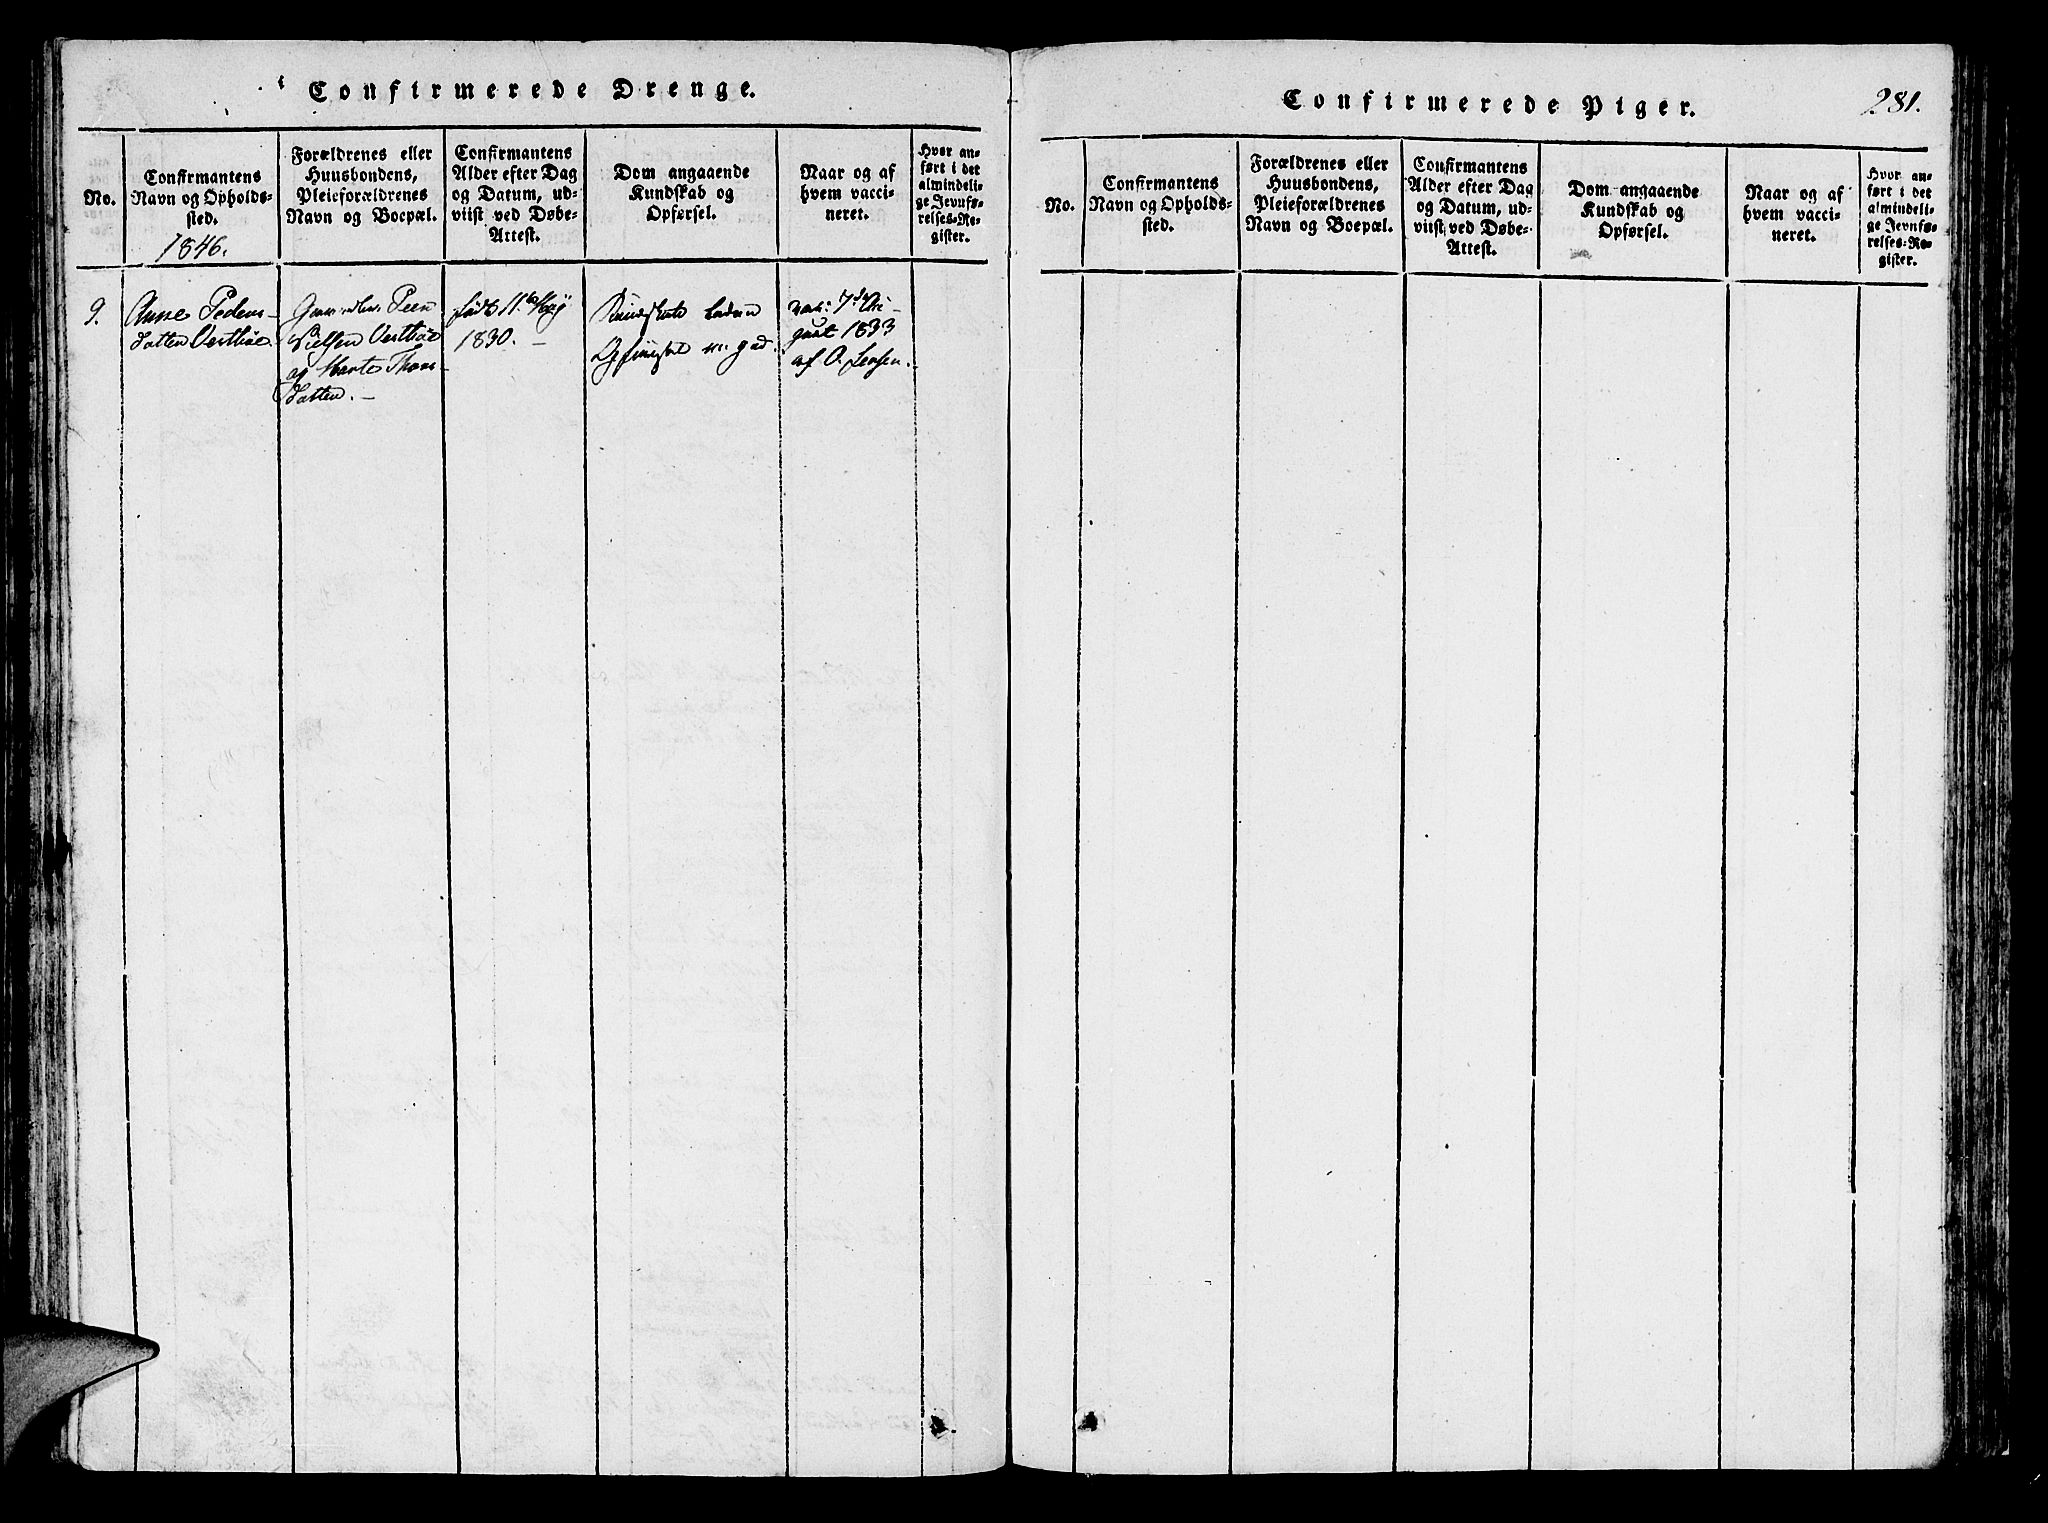 Confirmerede Drenge.
No.
Confirmantens
Navn og Opholds-
sted.
1846.
Forældrenes eller
Huusbondens,
Pleieforældrenes
Navn og Boepæl.
Confirmantens
Alder efter Dag
og Datum, ud-
viist ved Døbe-
Attest.
Dom angaaende
Kundskab og
Opførsel.
Naar og af
hvem vacci-
neret.
Hvor an-
ført i det
almindeli-
ge Jevnfø-
relses-Re-
gister.
9.
Anne Peders-
datter Vestbøe.
Peder
Nielsen Vestbøe
og Marte Thors-
datter. —
født 11te Maÿ
1830. —
Kundskab
Opførsel god.
vac: 7de Au-
gust 1833
af O. Jensen.
Confirmerede Piger.
281.
No.
Confirmantens
Navn og Opholds-
sted.
Forældrenes eller
Huusbondens,
Pleieforældrenes
Navn og Boepæl.
Confirmantens
Alder efter Dag
og Datum, ud-
viist ved Døbe-
Attest.
Dom angaaende
Kundskab og
Opførsel.
Naar og af
hvem vacci-
neret.
Hvor an-
ført i det
almindeli-
ge Jevnfø-
relses-Re-
gister.